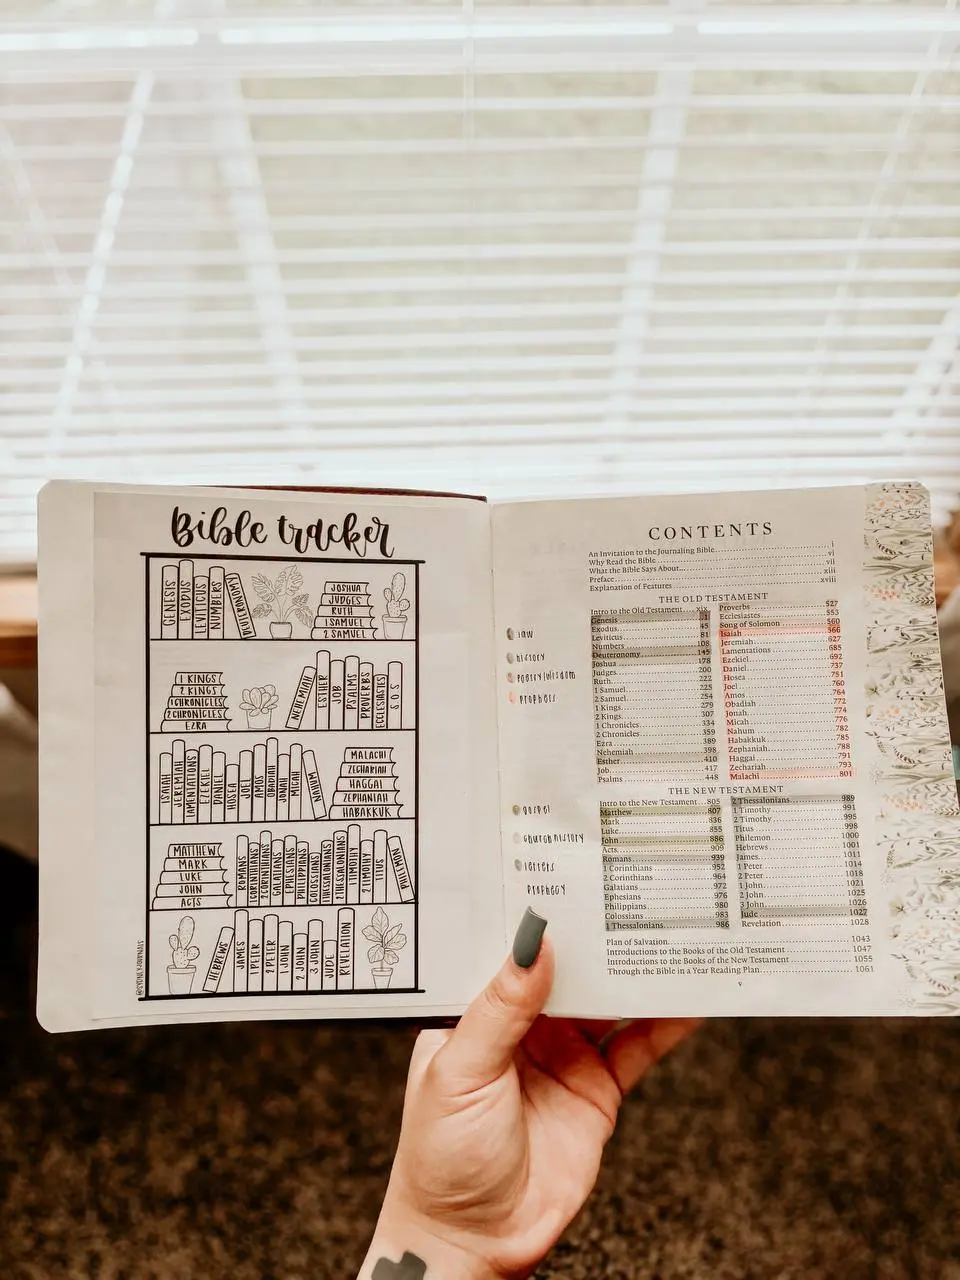 Bible tracker
GENESIS
EXODUS
LEVITICUS
NUMBERS
DEUTERONOMY
JOSHUA
JUDGES
RUTH
1 SAMUEL
2 SAMUEL
1 KINGS
2 KINGS
1 CHRONICLES
2 CHRONICLES
EZRA
NEHEMIAH
ESTHER
JOB
PSALMS
PROVERBS
ECCLESIASTES
S.O.S
ISAIAH
JEREMIAH
LAMENTATIONS
EZEKIEL
DANIEL
HOSEA
JOEL
AMOS
OBADIAH
JONAH
MICAH
NAHUM
MALACHI
ZECHARIAH
HAGGAI
ZEPHANIAH
HABAKKUK
MATTHEW
MARK
LUKE
JOHN
ACTS
ROMANS
1 CORINTHIANS
2 CORINTHIANS
GALATIANS
EPHESIANS
PHILIPPIANS
COLOSSIANS
1 THESSALONIANS
2 THESSALONIANS
1 TIMOTHY
2 TIMOTHY
TITUS
PHILMON
HEBREWS
JAMES
1 PETER
2 PETER
1 JOHN
2 JOHN
3 JOHN
JUDE
REVELATION
CONTENTS
An Invitation to the Journaling Bible i
Why Read the Bible vi
What the Bible Says About vii
Preface xiii
Explanation of Features xviii
THE OLD TESTAMENT
Intro to the Old Testament xix
Genesis 1
Exodus 45
Leviticus 81
Numbers 108
Deuteronomy 145
Joshua 178
Judges 200
Ruth 222
1 Samuel 225
2 Samuel 254
1 Kings 279
2 Kings 307
1 Chronicles 334
2 Chronicles 359
Ezra 389
Nehemiah 398
Esther 410
Job 417
Psalms 448
Proverbs 527
Ecclesiastes 553
Song of Solomon 560
Isaiah 566
Jeremiah 627
Lamentations 685
Ezekiel 692
Daniel 737
Hosea 751
Joel 760
Amos 764
Obadiah 772
Jonah 774
Micah 776
Nahum 782
Habakkuk 785
Zephaniah 788
Haggai 791
Zechariah 793
Malachi 801
law
history
poetry/wisdom
prophets
THE NEW TESTAMENT
Intro to the New Testament 805
Matthew 807
Mark 836
Luke 855
John 886
Acts 909
Romans 939
1 Corinthians 952
2 Corinthians 964
Galatians 972
Ephesians 976
Philippians 980
Colossians 983
1 Thessalonians 986
2 Thessalonians 989
1 Timothy 991
2 Timothy 995
Titus 998
Philemon 1000
Hebrews 1001
James 1011
1 Peter 1014
2 Peter 1018
1 John 1021
2 John 1025
3 John 1026
Jude 1027
Revelation 1028
gospel
church history
letters
prophecy
Plan of Salvation 1043
Introductions to the Books of the Old Testament 1047
Introductions to the Books of the New Testament 1055
Through the Bible in a Year Reading Plan 1061
v